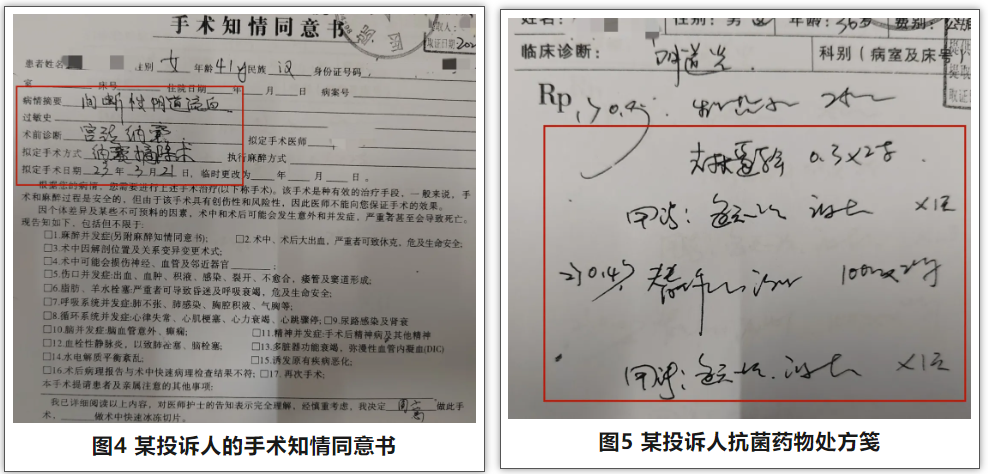 手术知情同意书
取证日期202
患者姓名 性别 女 年龄 41y 民族 汉 身份证号码
室 床号 住院日期 年 月 日 病案号
病情摘要 间断性阴道流血
过敏史
术前诊断 宫颈纳囊 拟定手术医师
拟定手术方式 纳囊摘除术 执行麻醉方式
拟定手术日期 23年3月21日，临时更改为 年 月 日。
根据您的病情，您需要进行上述手术治疗(以下称手术)。该手术是种有效的治疗手段，一般来说，手
术和麻醉过程是安全的，但由于该手术具有创伤性和风险性，因此医师不能向您保证手术的效果。
因个体差异及某些不可预料的因素，术中和术后可能会发生意外和并发症，严重者甚至会导致死亡。
现告知如下，包括但不限于：
□1.麻醉并发症(另附麻醉知情同意书)； □2.术中、术后大出血，严重者可致休克，危及生命安全；
□3.术中因解剖位置及关系变异变更术式；
□4.术中可能会损伤神经、血管及邻近器官 ；
□5.伤口并发症：出血、血肿、积液、感染、裂开、不愈合，瘘管及窦道形成；
□6.脂肪、羊水栓塞：严重者可导致昏迷及呼吸衰竭，危及生命安全；
□7.呼吸系统并发症：肺不张、肺感染、胸腔积液、气胸等；
□8.循环系统并发症：心律失常、心肌梗塞、心力衰竭、心跳骤停；□9.尿路感染及肾衰
□10.脑并发症：脑血管意外、癫痫； □11.精神并发症：手术后精神病及其他精神
□12.血栓性静脉炎，以致肺栓塞、脑栓塞； □13.多脏器功能衰竭，弥漫性血管内凝血(DIC)
□14.水电解质平衡紊乱； □15.诱发原有疾病恶化；
□16.术后病理报告与术中快速病理检查结果不符；□17.再次手术；
本手术提请患者及亲属注意的其他事项：
我已详细阅读以上内容，对医师护士的告知表示完全理解，经慎重考虑，我决定 做此手
术， 做术中快速冰冻切片。
图4 某投诉人的手术知情同意书
姓名： 性别： 年龄：36岁 费别：
临床诊断： 阴道炎 科别（病室及床号）
Rp
1) 0.4g
0.3×2
用法： ×1
2) 0.4% 100ml×2
用法： ×1
图5 某投诉人抗菌药物处方笺